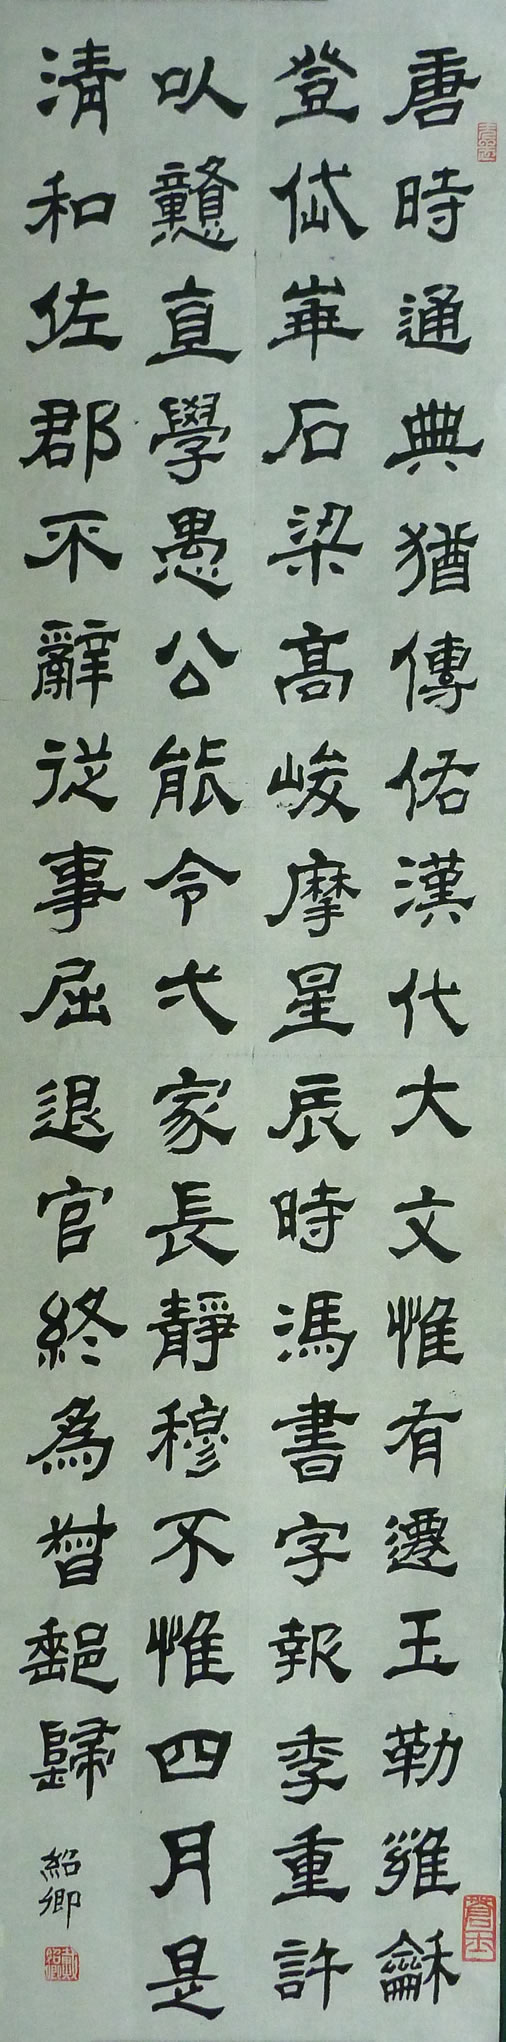 唐時通典猶傳佑漢代大文惟有遷玉勒雖龢
登岱華石梁高峻摩星辰時馮書字報季重許
以戇直學愚公能令大家長靜穆不惟四月是
清和佐郡不辭從事屈退官終為督郵歸
紹卿